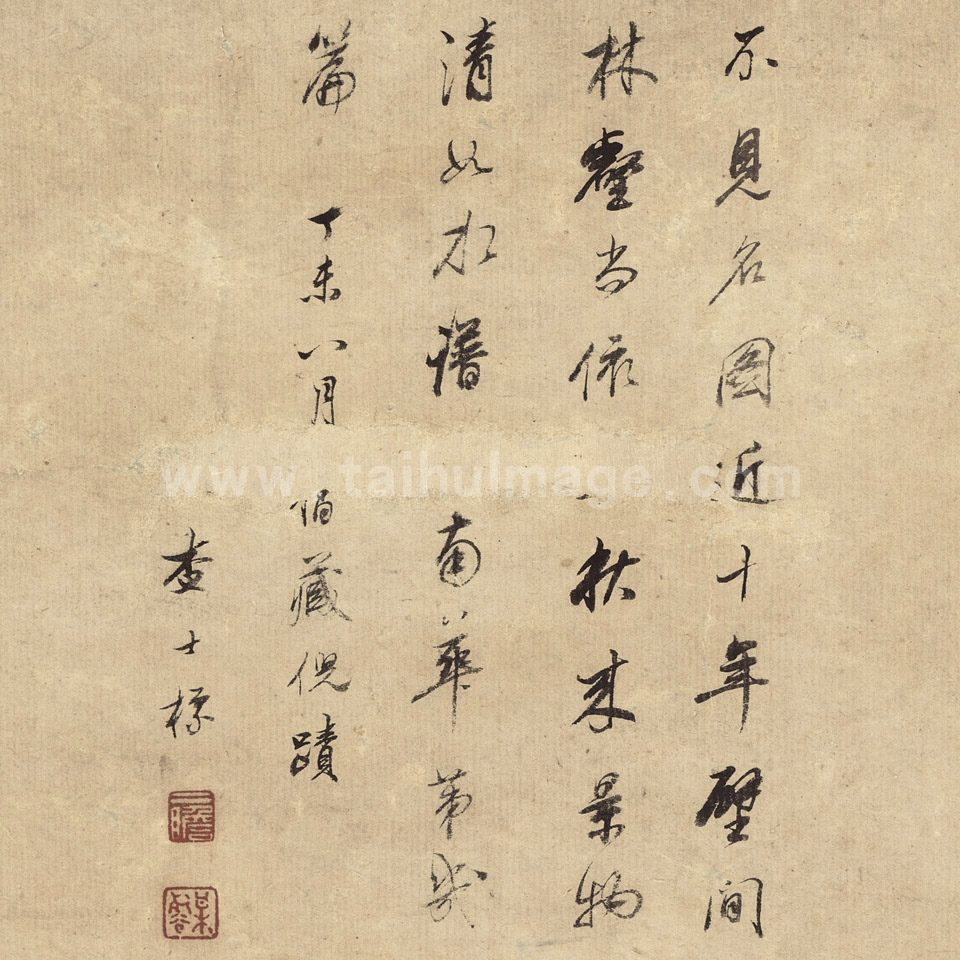 不見名圖近十年壁間
林壑尚依々秋來景物
清如水譜南華第幾
篇 丁未八月 伯藏倪蹟
查士標
二瞻